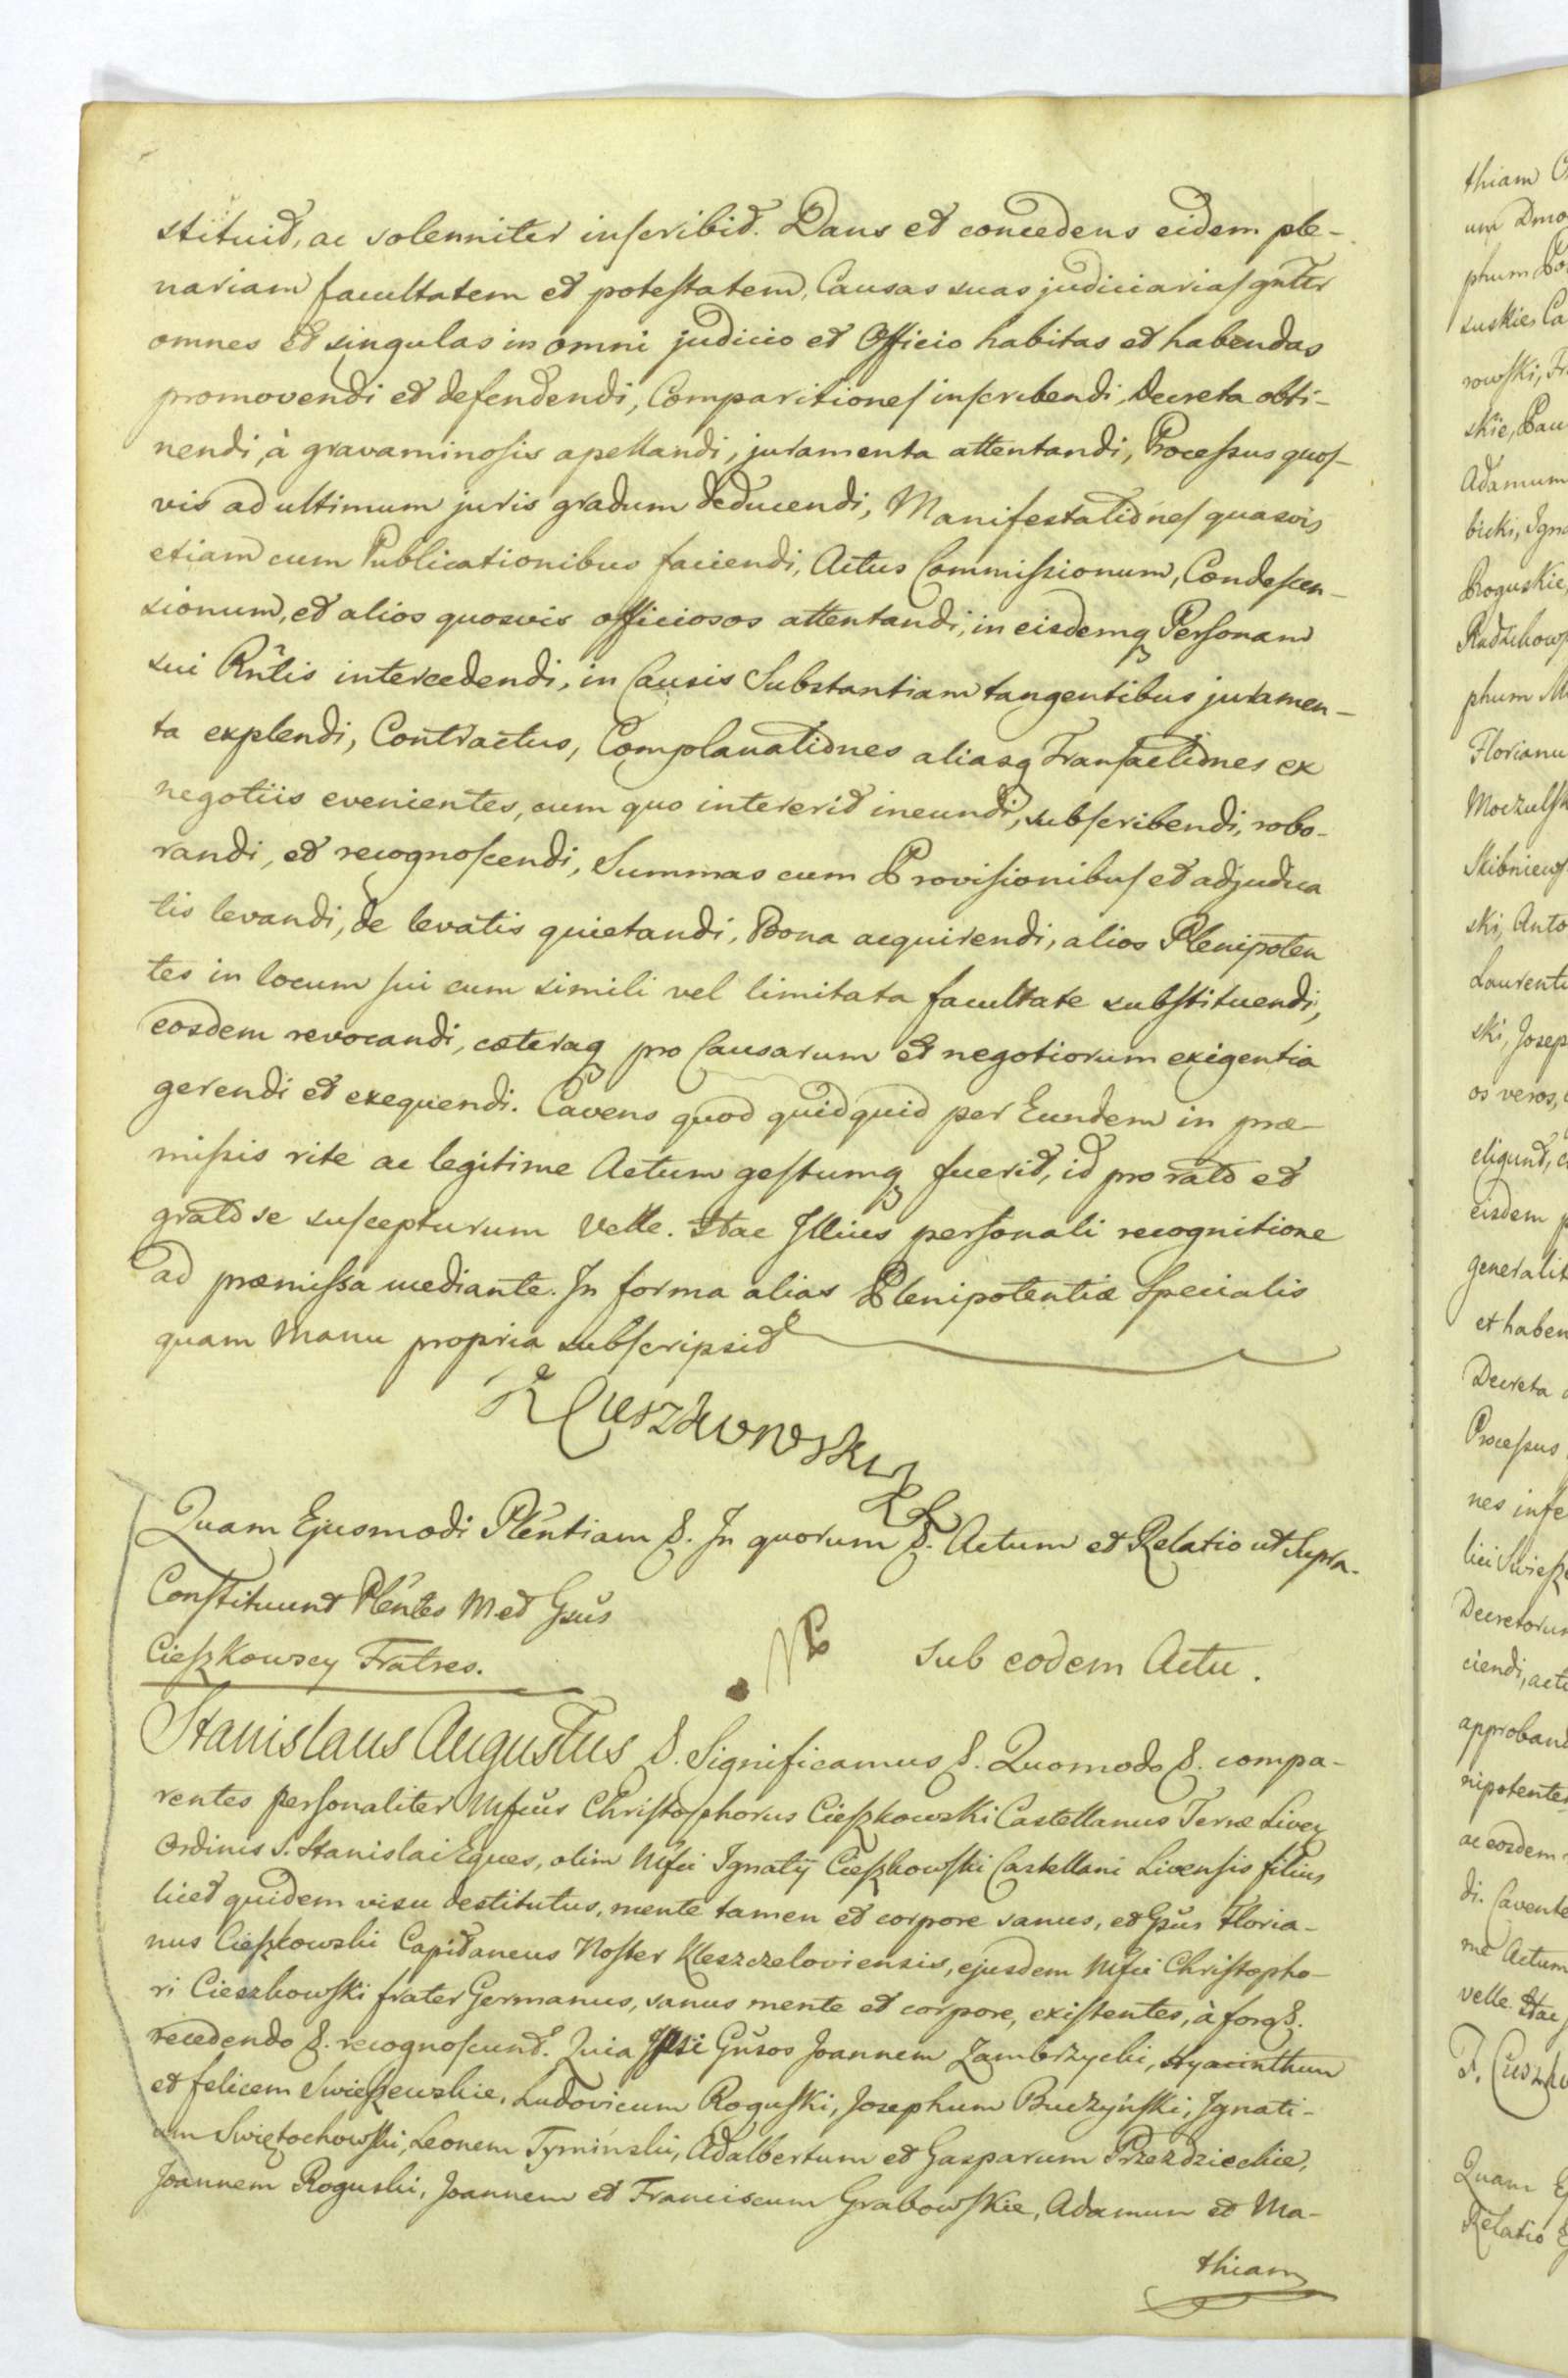 stituit, ac solenniter inscribit. Dans et concedens eidem ple-
nariam facultatem et potestatem, Causas suas judiciarias gnlter
omnes et singulas in omni judicio et Officio habitas et habendas
promovendi et defendendi, Comparitiones inscribendi, Decreta obti-
nendi, à gravaminosis apellandi, juramenta attentandi, Processus quos-
vis ad ultimum juris gradum deducendi, Manifestationes quasvis
etiam cum Publicationibus faciendi, Actus Commissionum, Condescen-
sionum, et alios quosvis officiosos attentandi, in eisdemq Personam
sui Rnlis intercedendi, in Causis Substantiam tangentibus juramen-
ta explendi, Contractus, Complanationes aliasq Transactiones ex
negotiis evenientes, cum quo intererit ineundi, subscribendi, robo-
randi, et recognoscendi, Summas cum Provisionibus et adjudica
tis levandi, de levatis quietandi, Bona acquirendi, alios Plenipoten
tes in locum sui cum simili vel limitata facultate substituendi,
eosdem revocandi, caeteraq pro Causarum et negotiorum exigentia
gerendi et exequendi. Cavens quod quidquid per Eundem in prae-
missis rite ac legitime Actum gestumq fuerit, id pro rato et
grato se suscepturum velle. Hac Illius personali recognitione
ad praemissa mediante. In forma alias Plenipotentiae Specialis
quam Manu propria subscripsit
K Cieszkowski
Quam Ejusmodi Plentiam &. In quorum &. Actum et Relatio ut Supra.
Constituunt Plentes M et Gsus
Cieszkowscy Fratres.
Sub eodem Actu.
Stanislaus Augustus &. Significamus &. Quomodo &. compa-
rentes personaliter Mfcus Christophorus Cieszkowski Castellanus Terrae Livey
Ordinis S. Stanislai Eques, olim Mfci Ignatij Cieszkowski Castellani Livensis filius
licet quidem visu destitutus, mente tamen et corpore sanus, et Gsus Floria-
nus Cieszkowski Capitaneus Noster Kleszczeloviensis, ejusdem Mfci Christopho-
ri Cieszkowski frater Germanus, sanus mente et corpore, existentes, à foro &.
recedendo &. recognoscunt. Quia Ipsi Gnsos Joannem Zambrzycki, Hyacinthum
et felicem Swieszewskie, Ludovicum Roguski, Josephum Buczyński, Ignati-
um Swiętochowski, Leonem Tymiński, Adalbertum et Gasparum Przezdzieckie,
Joannem Roguski, Joannem et Franciscum Grabowskie, Adamum et Ma-
thiam
thiam
um Dmo
phum
suskie, Ca
rowski, Fr
skie, Pau
Adamum
bicki, Igna
Roguskie,
Radzikows
phum M
Florianu
Moczulsk
Skibniews
ski, Anto
Laurenti
ski, Josep
os veros,
eligunt, c
eisdem p
generalit
et haben
Decreta
Processus
nes infe
lici Swiesz
Decretorum
ciendi, acti
approband
nipotentes
ac eosdem
di. Cavente
me Actum
velle. Hac
F. Cieszko
Quam Ej
Relatio